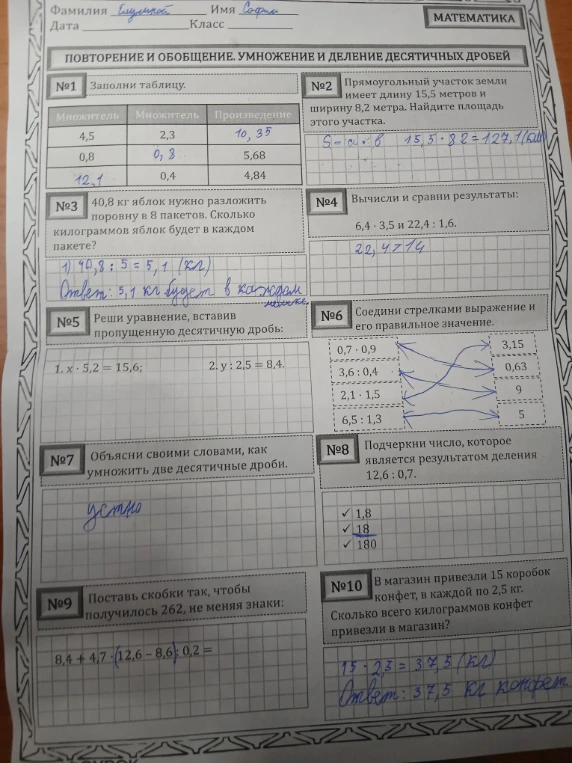 Фамилия Имя Софии
Дата Класс
МАТЕМАТИКА
ПОВТОРЕНИЕ И ОБОБЩЕНИЕ. УМНОЖЕНИЕ И ДЕЛЕНИЕ ДЕСЯТИЧНЫХ ДРОБЕЙ
№1 Заполни таблицу.
Множитель Множитель Произведение
4,5 2,3 10,35
0,8 5,68
12,1 0,4 4,84
№2 Прямоугольный участок земли
имеет длину 15,5 метров и
ширину 8,2 метра. Найдите площадь
этого участка.
S = a · b 15,5 · 82 = 127,1
№3 40,8 кг яблок нужно разложить
поровну в 8 пакетов. Сколько
килограммов яблок будет в каждом
пакете?
1) 40,8 : 5 = 5,1 (кг)
Ответ: 5,1 кг будет в каждом
№4 Вычисли и сравни результаты:
6,4 · 3,5 и 22,4 : 1,6.
22,4 > 14
№5 Реши уравнение, вставив
пропущенную десятичную дробь:
1. x · 5,2 = 15,6; 2. y : 2,5 = 8,4.
№6 Соедини стрелками выражение и
его правильное значение.
0,7 · 0,9 3,15
3,6 : 0,4 0,63
2,1 · 1,5 9
6,5 : 1,3 5
№7 Объясни своими словами, как
умножить две десятичные дроби.
устно
№8 Подчеркни число, которое
является результатом деления
12,6 : 0,7.
✓ 1,8
✓ 18
✓ 180
№9 Поставь скобки так, чтобы
получилось 262, не меняя знаки:
8,4 + 4,7 · (12,6 – 8,6) : 0,2 =
№10 В магазин привезли 15 коробок
конфет, в каждой по 2,5 кг.
Сколько всего килограммов конфет
привезли в магазин?
15 · 2,5 = 37,5 (кг)
Ответ: 37,5 кг конфет